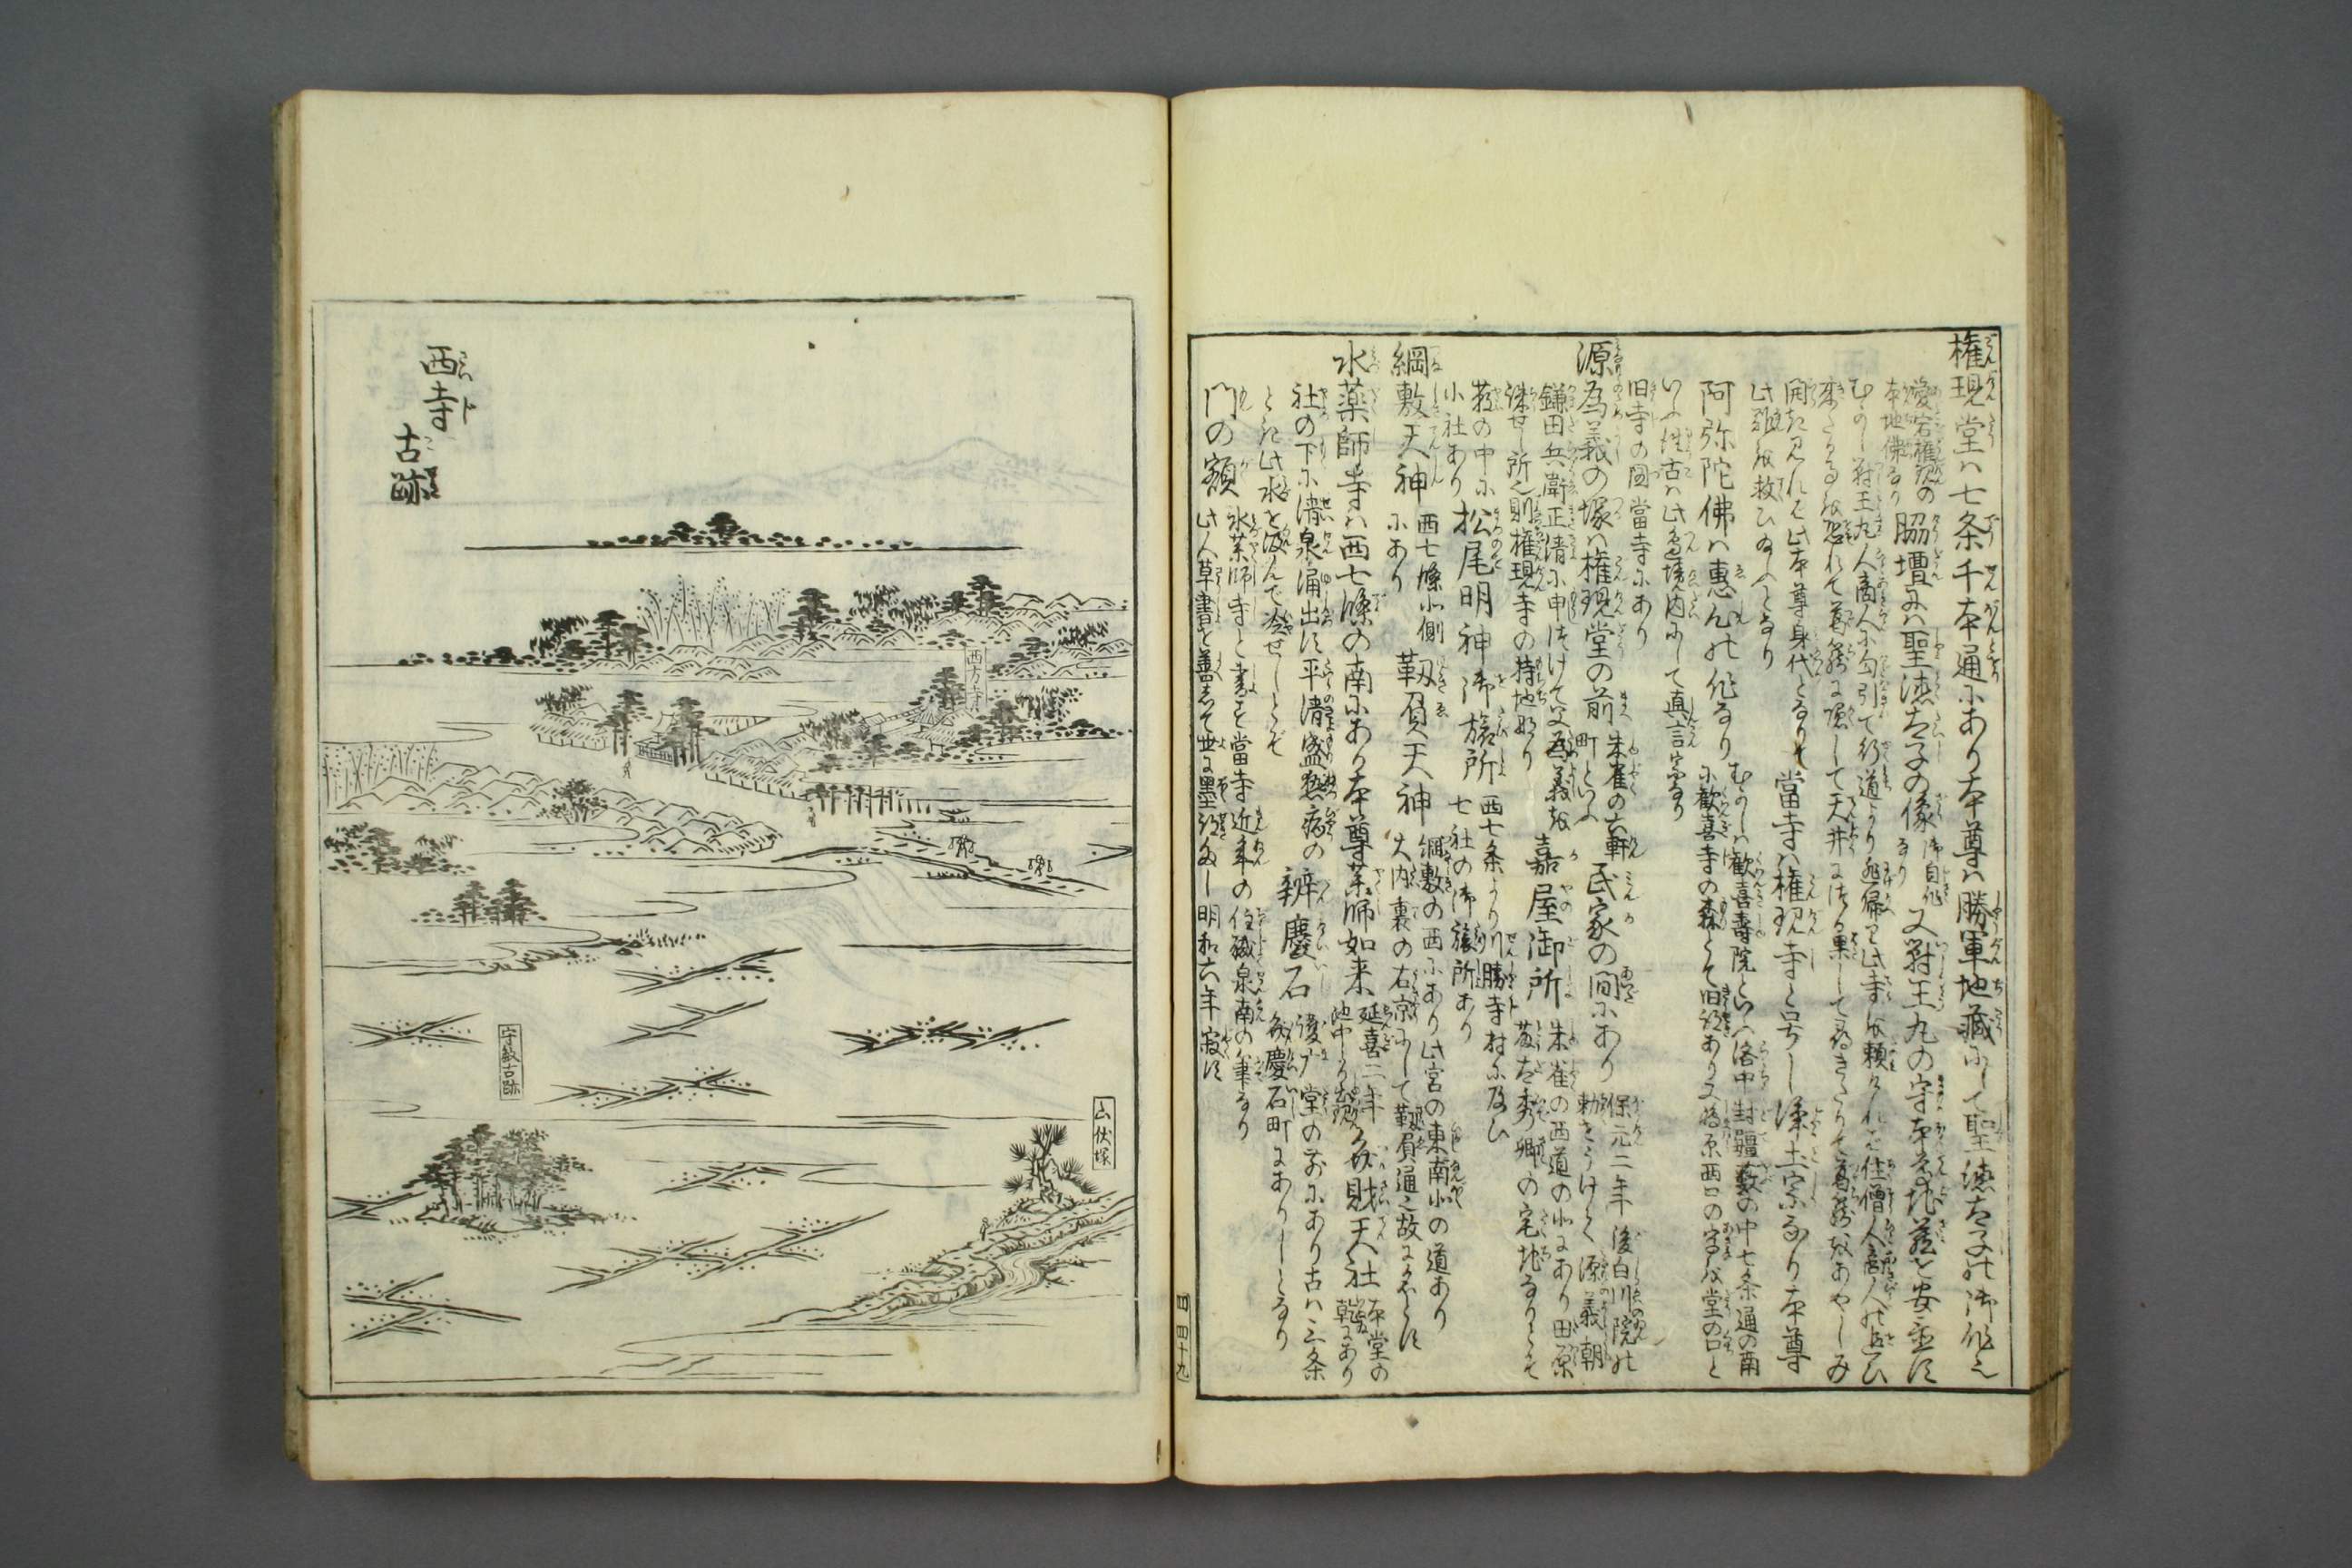 権現堂ハ七条千本通にあり本尊ハ勝軍地蔵にして聖徳太子の御作也
愛宕権現の本地佛なり脇壇にハ聖徳太子の像御自作なり又対王丸の守本尊地蔵を安置す
むかし対王丸人商人に勾引て行道より逃帰り此寺を頼けれバ住僧人商人の追ひ
来たるを恐れて葛籠に隠して天井につる果して尋きたりて葛籠をあやしみ
開き見れば此本尊身代となりて
此難を救ひ給ふとなり
當寺ハ権現寺と号し浄土宗なり本尊
阿弥陀佛ハ恵心の作なり
むかしハ歓喜壽院といふ洛中封疆藪の中七条通の南
に歓喜寺の森とて旧跡あり又嶋原西口の字を堂の口と
いふ往古ハ此邊境内にして真言宗なり
旧寺の図當寺にあり
源為義の塚ハ権現堂の前朱雀の六軒町といふ民家の間にあり
保元二年後白川院の
勅をうけて源義朝
鎌田兵衛正清に申つけて父為義を
誅せし所也則権現寺の持地なり
嘉屋御所
朱雀の西道の北にあり田原
藤太秀郷の宅地なりとぞ
藪の中に
小社あり
松尾明神御旅所
西七条より川勝寺村に及ひ
七社の御旅所あり
綱敷天神
西七條北側
にあり
靱負天神
綱敷の西にあり此宮の東南北の道あり
大内裏の右京にして靱負通也故に名とす
水薬師寺ハ西七條の南にあり本尊薬師如来
延喜二年
池中より出現
弁財天社
本堂の
乾にあり
社の下に清泉涌出す平清盛熱病の
とき此水を汲んで冷せしとぞ
辨慶石
護广堂の前にあり古ハ三条
弁慶石町にありしとなり
門の額
水薬師寺と書を當寺近年の住職泉南の筆なり
此人草書を善して世に墨跡多し明和六年寂す
四 四十九
西寺
古跡
さいじ
こせき
西方寺
守敏古跡
山伏塚